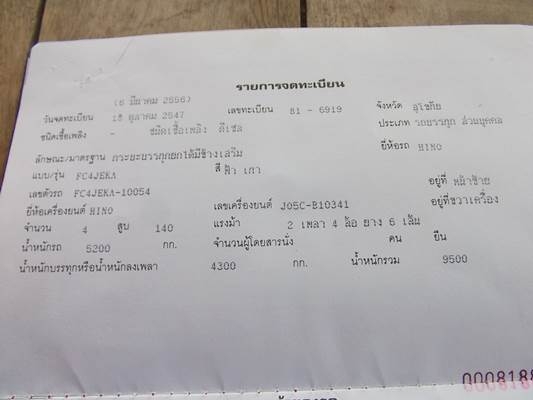 รายการจดทะเบียน
(6 มีนาคม 2556)
วันจดทะเบียน 18 ตุลาคม 2547 เลขทะเบียน 81 - 6919 จังหวัด สุโขทัย
ชนิดเชื้อเพลิง - ชนิดเชื้อเพลิง ดีเซล ประเภท รถบรรทุก ส่วนบุคคล
ลักษณะ/มาตรฐาน กระบะบรรทุกยกได้มีข้างเสริม ยี่ห้อรถ HINO
แบบ/รุ่น FC4JEKA สี ฟ้า เทา
เลขตัวรถ FC4JEKA-10054 อยู่ที่ หน้าซ้าย
ยี่ห้อเครื่องยนต์ HINO เลขเครื่องยนต์ J05C-B10341 อยู่ที่ขวาเครื่อง
จำนวน 4 สูบ 140 แรงม้า 2 เพลา 4 ล้อ ยาง 6 เส้น
น้ำหนักรถ 5200 กก. จำนวนผู้โดยสารนั่ง คน ยืน
น้ำหนักบรรทุกหรือน้ำหนักลงเพลา 4300 กก. น้ำหนักรวม 9500
000818